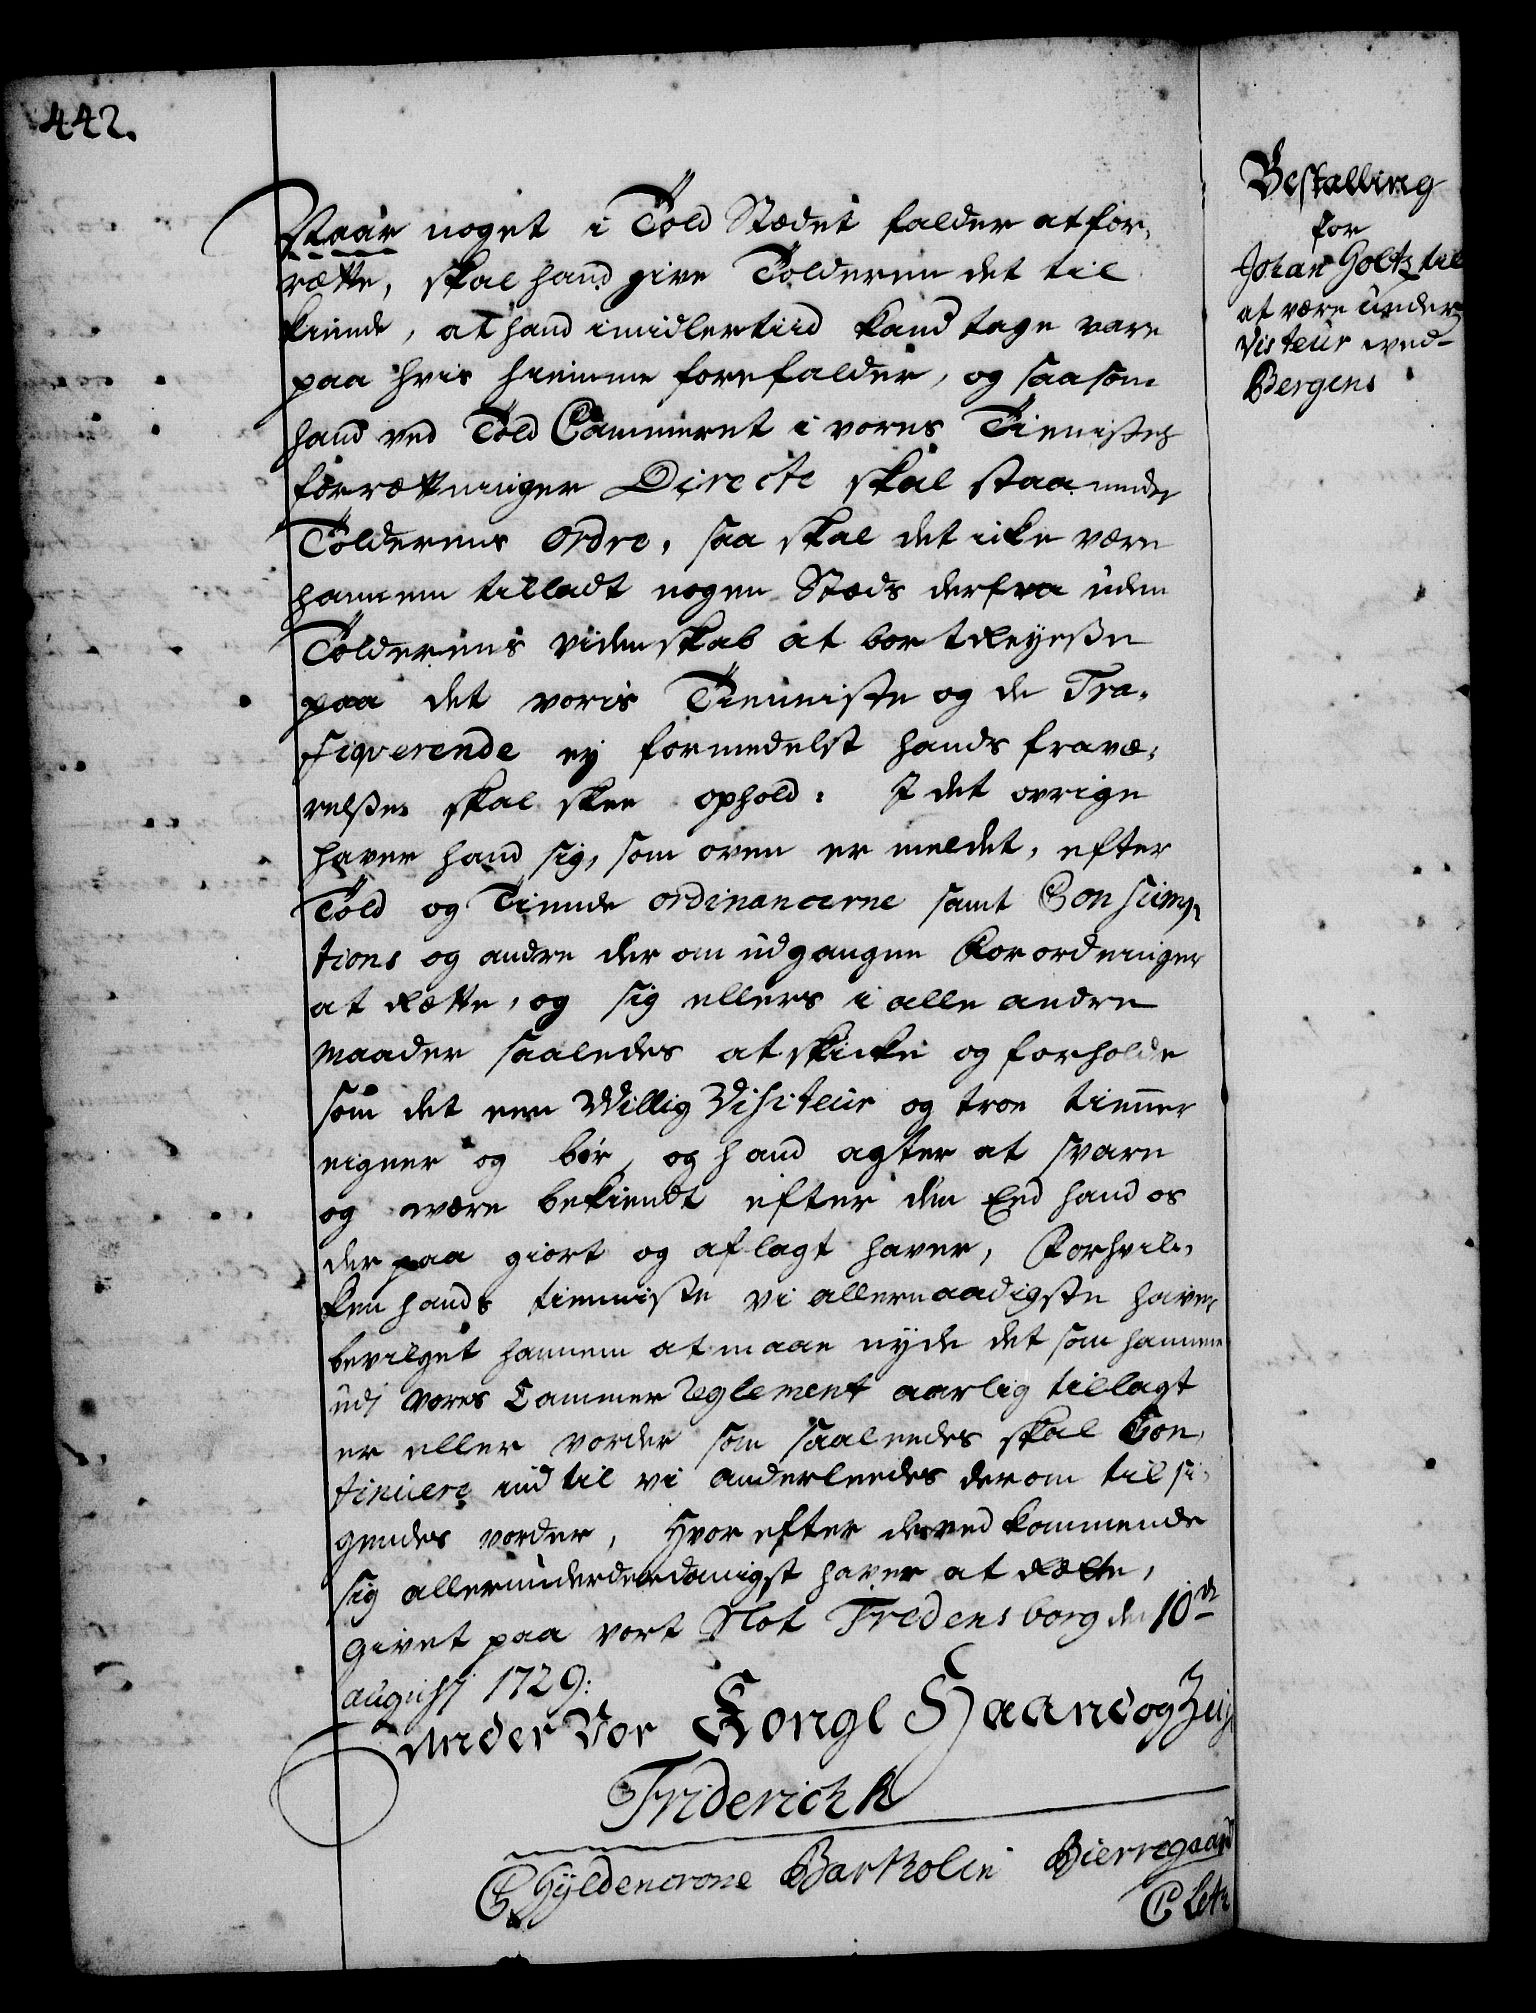 442.
Naar noget i Told Stædet falder at for,
rætte, skal hand give Tolderen det til
kiende, at hand imidlertiid kand tage vare
paa hvis hiemme forefalder, og saasom
hand ved Told Cammeret i vores Tienistes
forrættninger Directe skal staa under
Tolderens Ordre, saa skal det icke være
hannem tilladt nogen Stæds derfra uden
Tolderens videnskab at bortreyse
paa det voris Tienniste og de Tra,
fiqverende ej formedelst hands fravæ,
relse skal skee ophold: I det øvrige
haver hand sig, som oven er meldet, efter
Told og Tiende ordinancerne samt Consump,
tions og andre der om udgangne Forordninger
at rætte, og sig ellers i alle andre
maader saaledes at skicke og forholde
som det een Willig Visiteur og troe tienner
eigner og bør, og hand agter at svare
og være bekiendt efter den Eed hand os
derpaa giort og aflagt haver, Forhvil,
ken hands tienniste vi allernaadigste haver
bevilget hannem at maae nyde det som hannem
udj vores Cammer Reglement aarlig tillagt
er eller vorder som saaleedes skal Con,
tinuere indtil vi anderleedes derom tilsi,
gendes vorder, Hvorefter desvedkommende
sig allerunderdanigst haver at rætte,
givet paa vort Slot Fredensborg den 10de
augusti 1729:
Under Vor Kongl Haand og Zeig
Friderich R
C Gyldencrone Bartholin Bierregaard
Bestalling
for
Johan Goltz til
at være under
Visteur ved
Bergens